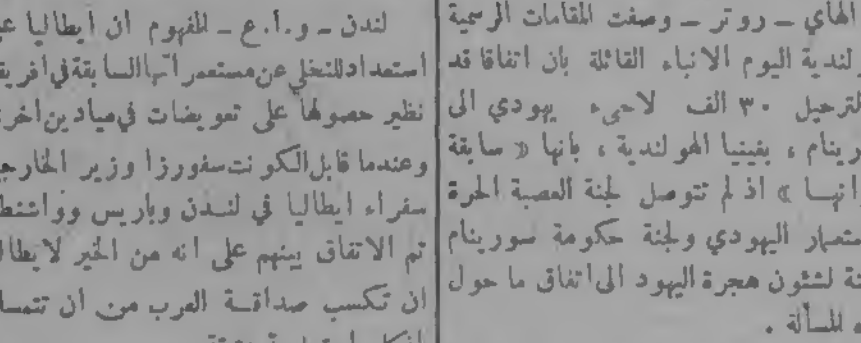 الهاي ــ روتر ــ وصفت المقامات الرسمية
لندية اليوم الانباء القائلة بان اتفاقا قد
لترحيل ٣٠ الف لاجيء يهودي الى
رينام ، بغينيا الهولندية ، بانها « سابقة
انهـا » اذ لم تتوصل لجنة العصبة الحرة
ستعمار اليهودي ولجنة حكومة سورينام
ئة لشئون هجرة اليهود الى اتفاق ما حول
ه المسألة .
لندن ــ و.أ.ع ــ المفهوم ان ايطاليا
استعداد للتخلي عن مستعمراتها السابقة في افريق
نظير حصولها على تعويضات في ميادين اخر
وعندما قابل الكونت سفورزا وزير الخارجي
سفراء ايطاليا في لنـدن وباريس وواشنط
تم الاتفاق بينهم على انه من الخير لايطال
ان تكسب صداقـة العرب من ان تتمسـ